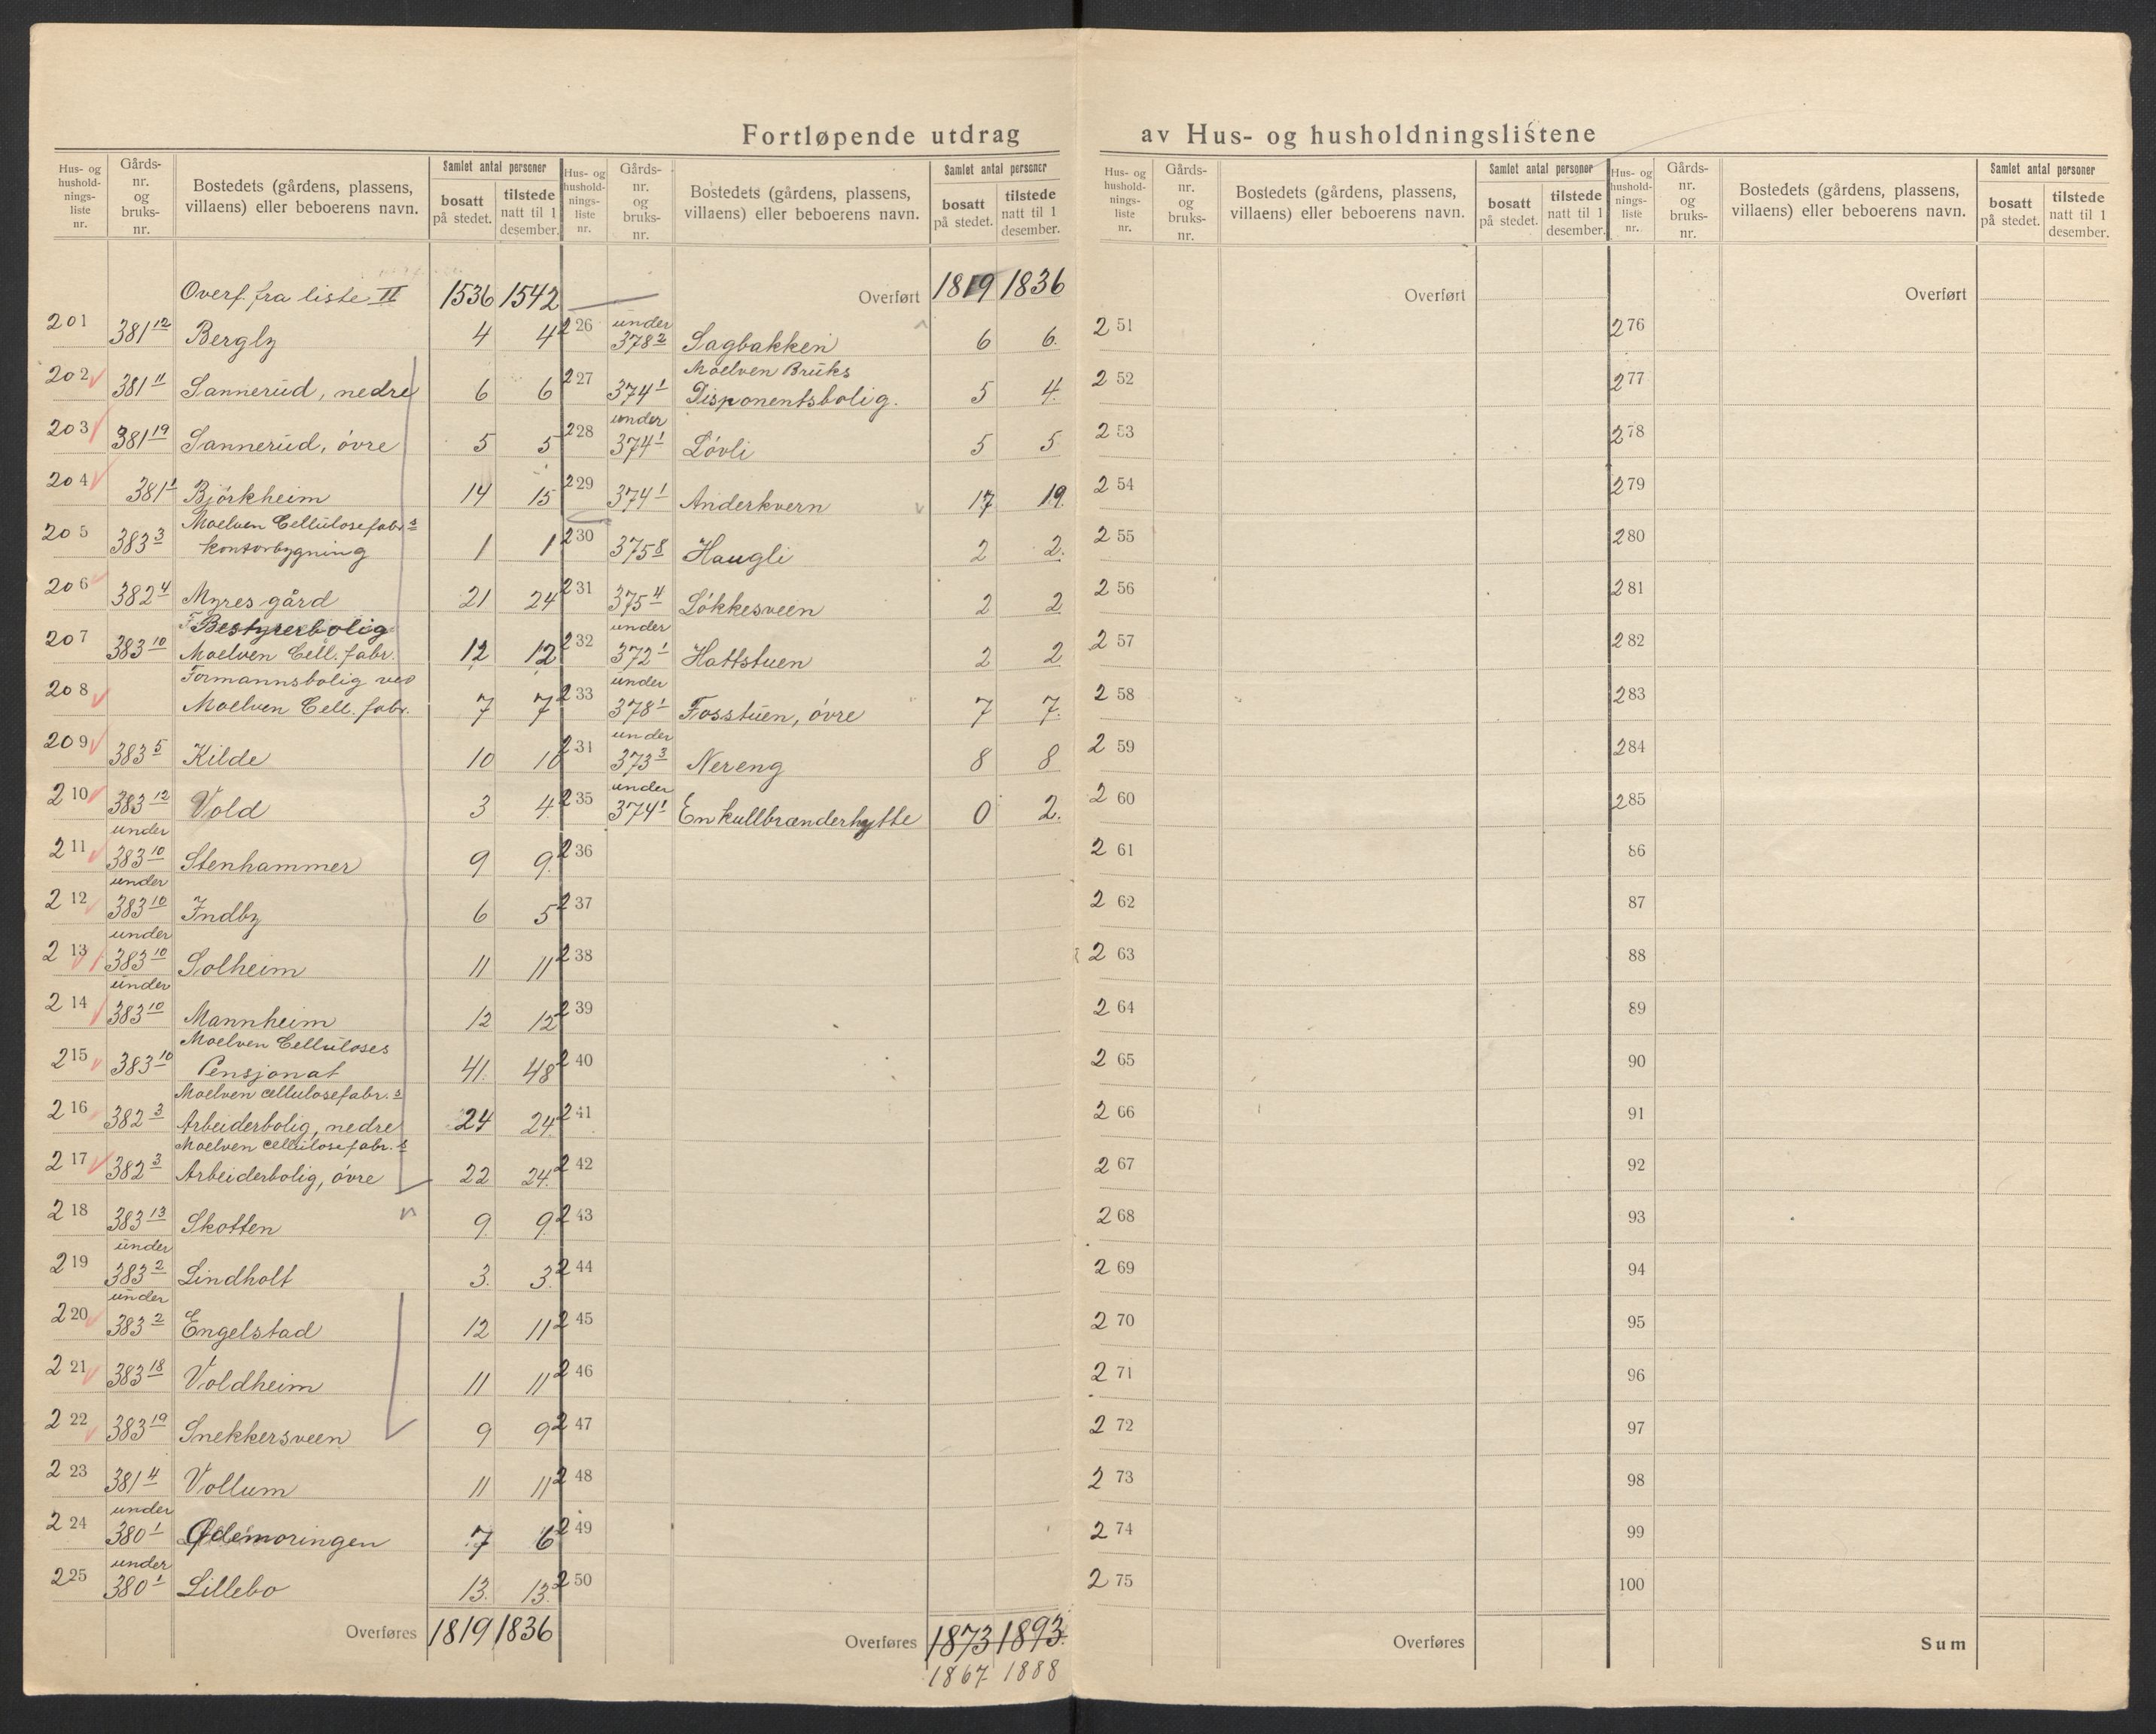 Fortløpende utdrag av Hus- og husholdningslistene
Hus- og hushold-nings-liste nr. | Gårds-nr. og bruks-nr. | Bostedets (gårdens, plassens, villaens) eller beboerens navn. | Samlet antal personer | bosatt på stedet. | tilstede natt til 1 desember.
Overf. fra liste II 1536 1542
201 381 12 Bergly 4 4
202 381 11 Sannerud, nedre 6 6
203 381 19 Sannerud, övre 5 5
204 381 1 Björkheim 14 15
Moelven Cellulosefabr. s
205 383 3 kontorbygning 1 1
206 382 4 Myres gård 21 24
Bestyrerbolig
207 383 10 Moelven Cell. fabr. 12 12
Formannsbolig ved
208 Moelven Cell. fabr. 7 7
209 383 5 Kilde 10 10
210 383 12 Vold 3 4
211 under 383 10 Stenhammer 9 9
212 under 383 10 Indby 6 5
213 under 383 10 Solheim 11 11
214 under 383 10 Mannheim 12 12
Moelven Celluloses
215 383 10 Pensjonat 41 48
Moelven cellulosefabr. s
216 382 3 Arbeiderbolig, nedre 24 24
Moelven cellulosefabr. s
217 382 3 Arbeiderbolig, övre 22 24
218 383 13 Skotten 9 9
219 under 383 2 Lindholt 3 3
220 under 383 2 Engelstad 12 11
221 383 18 Voldheim 11 11
222 383 19 Snekkersveen 9 9
223 381 4 Vollum 11 11
224 under 380 1 Ødemoringen 7 6
225 under 380 1 Lillebo 13 13
Overføres 1819 1836
Hus- og hushold-nings-liste nr. | Gårds-nr. og bruks-nr. | Bostedets (gårdens, plassens, villaens) eller beboerens navn. | Samlet antal personer | bosatt på stedet. | tilstede natt til 1 desember.
Overført 1819 1836
226 under 378 2 Sagbakken 6 6
Moelven Bruks
227 374 1 Disponentsbolig. 5 4
228 under 374 1 Lövli 5 5
229 374 1 Anderkvern 17 19
230 375 8 Haugli 2 2
231 375 4 Lökkesveen 2 2
232 under 372 1 Hattstuen 2 2
233 under 378 1 Fosstuen, övre 7 7
231 under 373 3 Nereng 8 8
235 under 374 1 En kullbrænderhytte 0 2
236
237
238
239
240
241
242
243
244
245
246
247
248
249
250
Overføres 1873 1893
1867 1888
Hus- og hushold-nings-liste nr. | Gårds-nr. og bruks-nr. | Bostedets (gårdens, plassens, villaens) eller beboerens navn. | Samlet antal personer | bosatt på stedet. | tilstede natt til 1 desember.
Overført
251
252
253
254
255
256
257
258
259
260
261
262
263
264
265
266
267
268
269
270
271
272
273
274
275
Overføres
Hus- og hushold-nings-liste nr. | Gårds-nr. og bruks-nr. | Bostedets (gårdens, plassens, villaens) eller beboerens navn. | Samlet antal personer | bosatt på stedet. | tilstede natt til 1 desember.
Overført
276
277
278
279
280
281
282
283
284
285
86
87
88
89
90
91
92
93
94
95
96
97
98
99
100
Sum